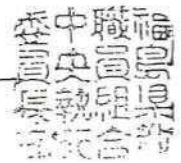 福島県教
職員組合
中央執行
委員長印